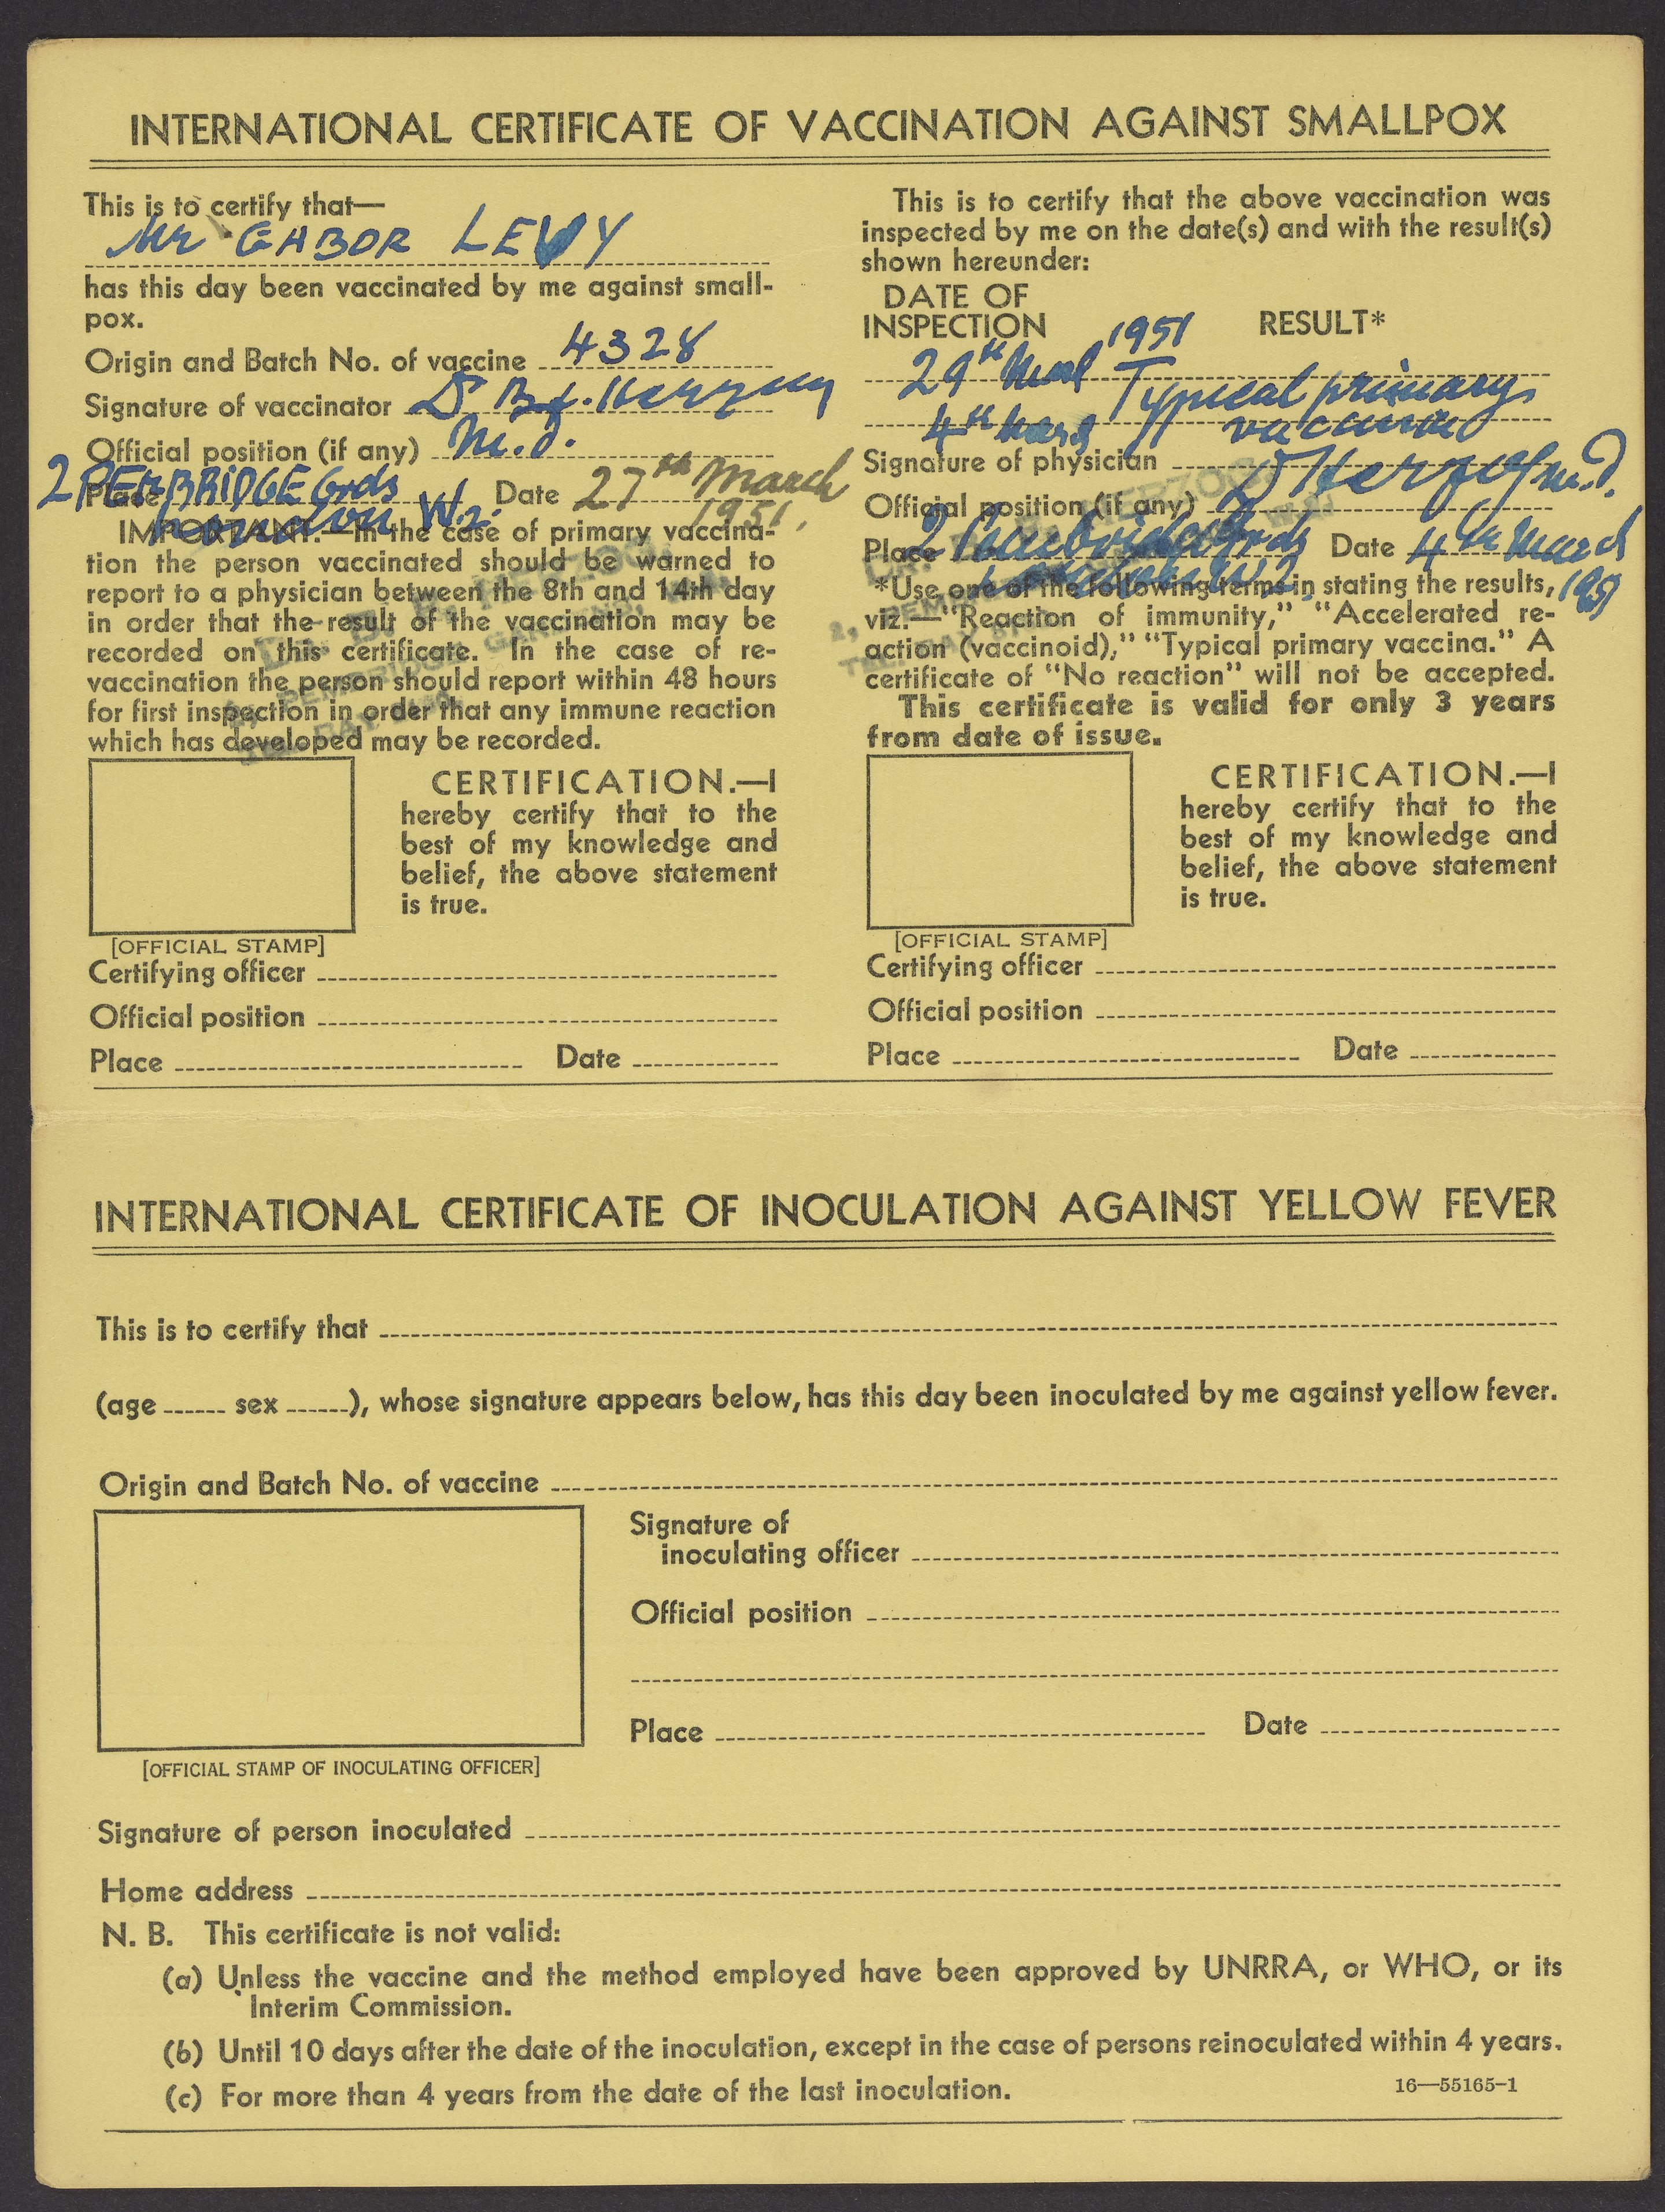 INTERNATIONAL CERTIFICATE OF VACCINATION AGAINST SMALLPOX
This is to certify that—
Mr GABOR LEVY
has this day been vaccinated by me against small-
pox.
Origin and Batch No. of vaccine 4328
Signature of vaccinator Dr B. Herzog
Official position (if any) M.D.
Place 2 PEMBRIDGE Grds Date 27th March
London W.2. 1951.
IMPORTANT.—In the case of primary vaccina-
tion the person vaccinated should be warned to
report to a physician between the 8th and 14th day
in order that the result of the vaccination may be
recorded on this certificate. In the case of re-
vaccination the person should report within 48 hours
for first inspection in order that any immune reaction
which has developed may be recorded.
[OFFICIAL STAMP]
CERTIFICATION.—I
hereby certify that to the
best of my knowledge and
belief, the above statement
is true.
Certifying officer
Official position
Place Date
This is to certify that the above vaccination was
inspected by me on the date(s) and with the result(s)
shown hereunder:
DATE OF
INSPECTION RESULT*
1951
29th Typical primary
4th vaccinia
Signature of physician Herzog M.D.
Official position (if any)
Place 2 Pembridge Grds Date 4th March
London W2. 1951
*Use one of the following terms in stating the results,
viz.—"Reaction of immunity," "Accelerated re-
action (vaccinoid)," "Typical primary vaccina." A
certificate of "No reaction" will not be accepted.
This certificate is valid for only 3 years
from date of issue.
[OFFICIAL STAMP]
CERTIFICATION.—I
hereby certify that to the
best of my knowledge and
belief, the above statement
is true.
Certifying officer
Official position
Place Date
INTERNATIONAL CERTIFICATE OF INOCULATION AGAINST YELLOW FEVER
This is to certify that
(age sex ), whose signature appears below, has this day been inoculated by me against yellow fever.
Origin and Batch No. of vaccine
Signature of
inoculating officer
Official position
Place Date
[OFFICIAL STAMP OF INOCULATING OFFICER]
Signature of person inoculated
Home address
N. B. This certificate is not valid:
(a) Unless the vaccine and the method employed have been approved by UNRRA, or WHO, or its
Interim Commission.
(b) Until 10 days after the date of the inoculation, except in the case of persons reinoculated within 4 years.
(c) For more than 4 years from the date of the last inoculation.
16—55165-1